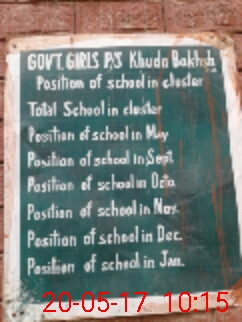 GOVT. GIRLS P/S Khuda Bakhsh
Position of school in cluster
Total School in cluster
Position of school in May
Position of school in Sept.
Position of school in Octo.
Position of school in Nov.
Position of school in Dec.
Position of school in Jan.
20-05-17 10:15